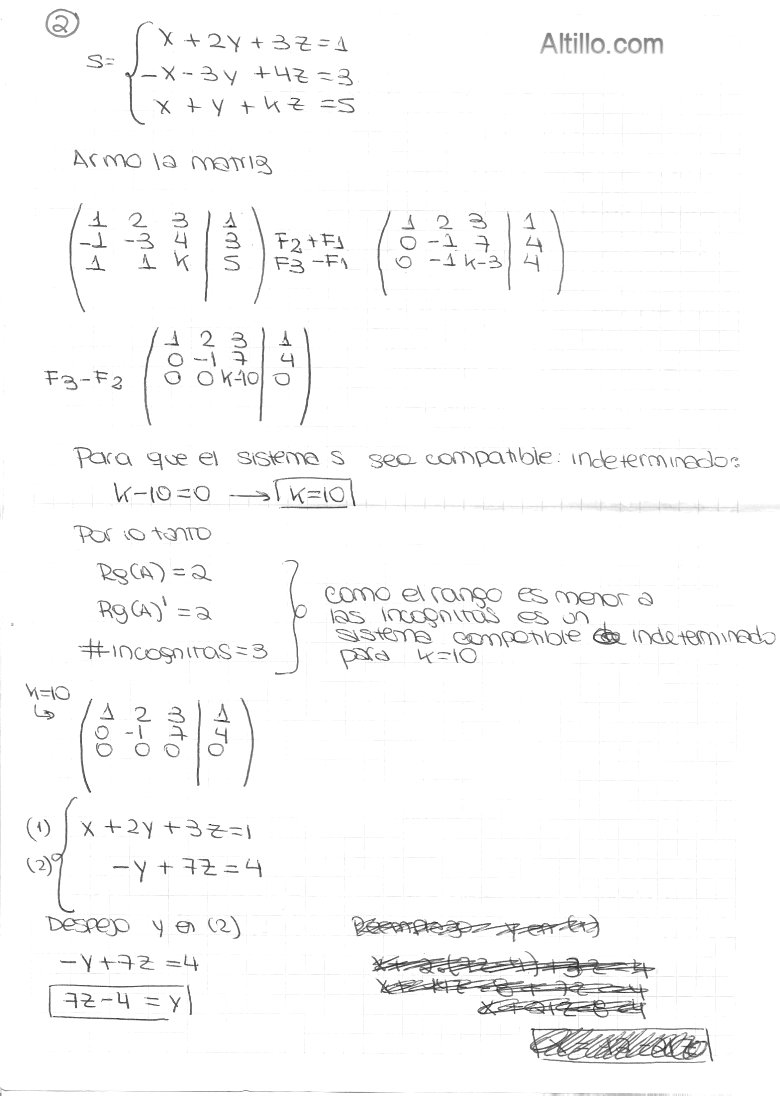 ②
Altillo.com
S= { x + 2y + 3z = 1
-x - 3y + 4z = 3
x + y + kz = 5
Armo la matriz
( 1 2 3 | 1 ) ( 1 2 3 | 1 )
( -1 -3 4 | 3 ) F2+F1 ( 0 -1 7 | 4 )
( 1 1 k | 5 ) F3-F1 ( 0 -1 k-3 | 4 )
( 1 2 3 | 1 )
( 0 -1 7 | 4 )
F3-F2 ( 0 0 k-10 | 0 )
Para que el sistema S sea compatible: indeterminado:
k-10=0 → k=10
Por lo tanto
Rg(A) = 2
Rg(A)' = 2
#incognitas = 3
como el rango es menor a
las incognitas es un
sistema compatible indeterminado
para k=10
k=10
↳ ( 1 2 3 | 1 )
( 0 -1 7 | 4 )
( 0 0 0 | 0 )
(1) { x + 2y + 3z = 1
(2) -y + 7z = 4
Despejo y en (2)
-y + 7z = 4
7z - 4 = y